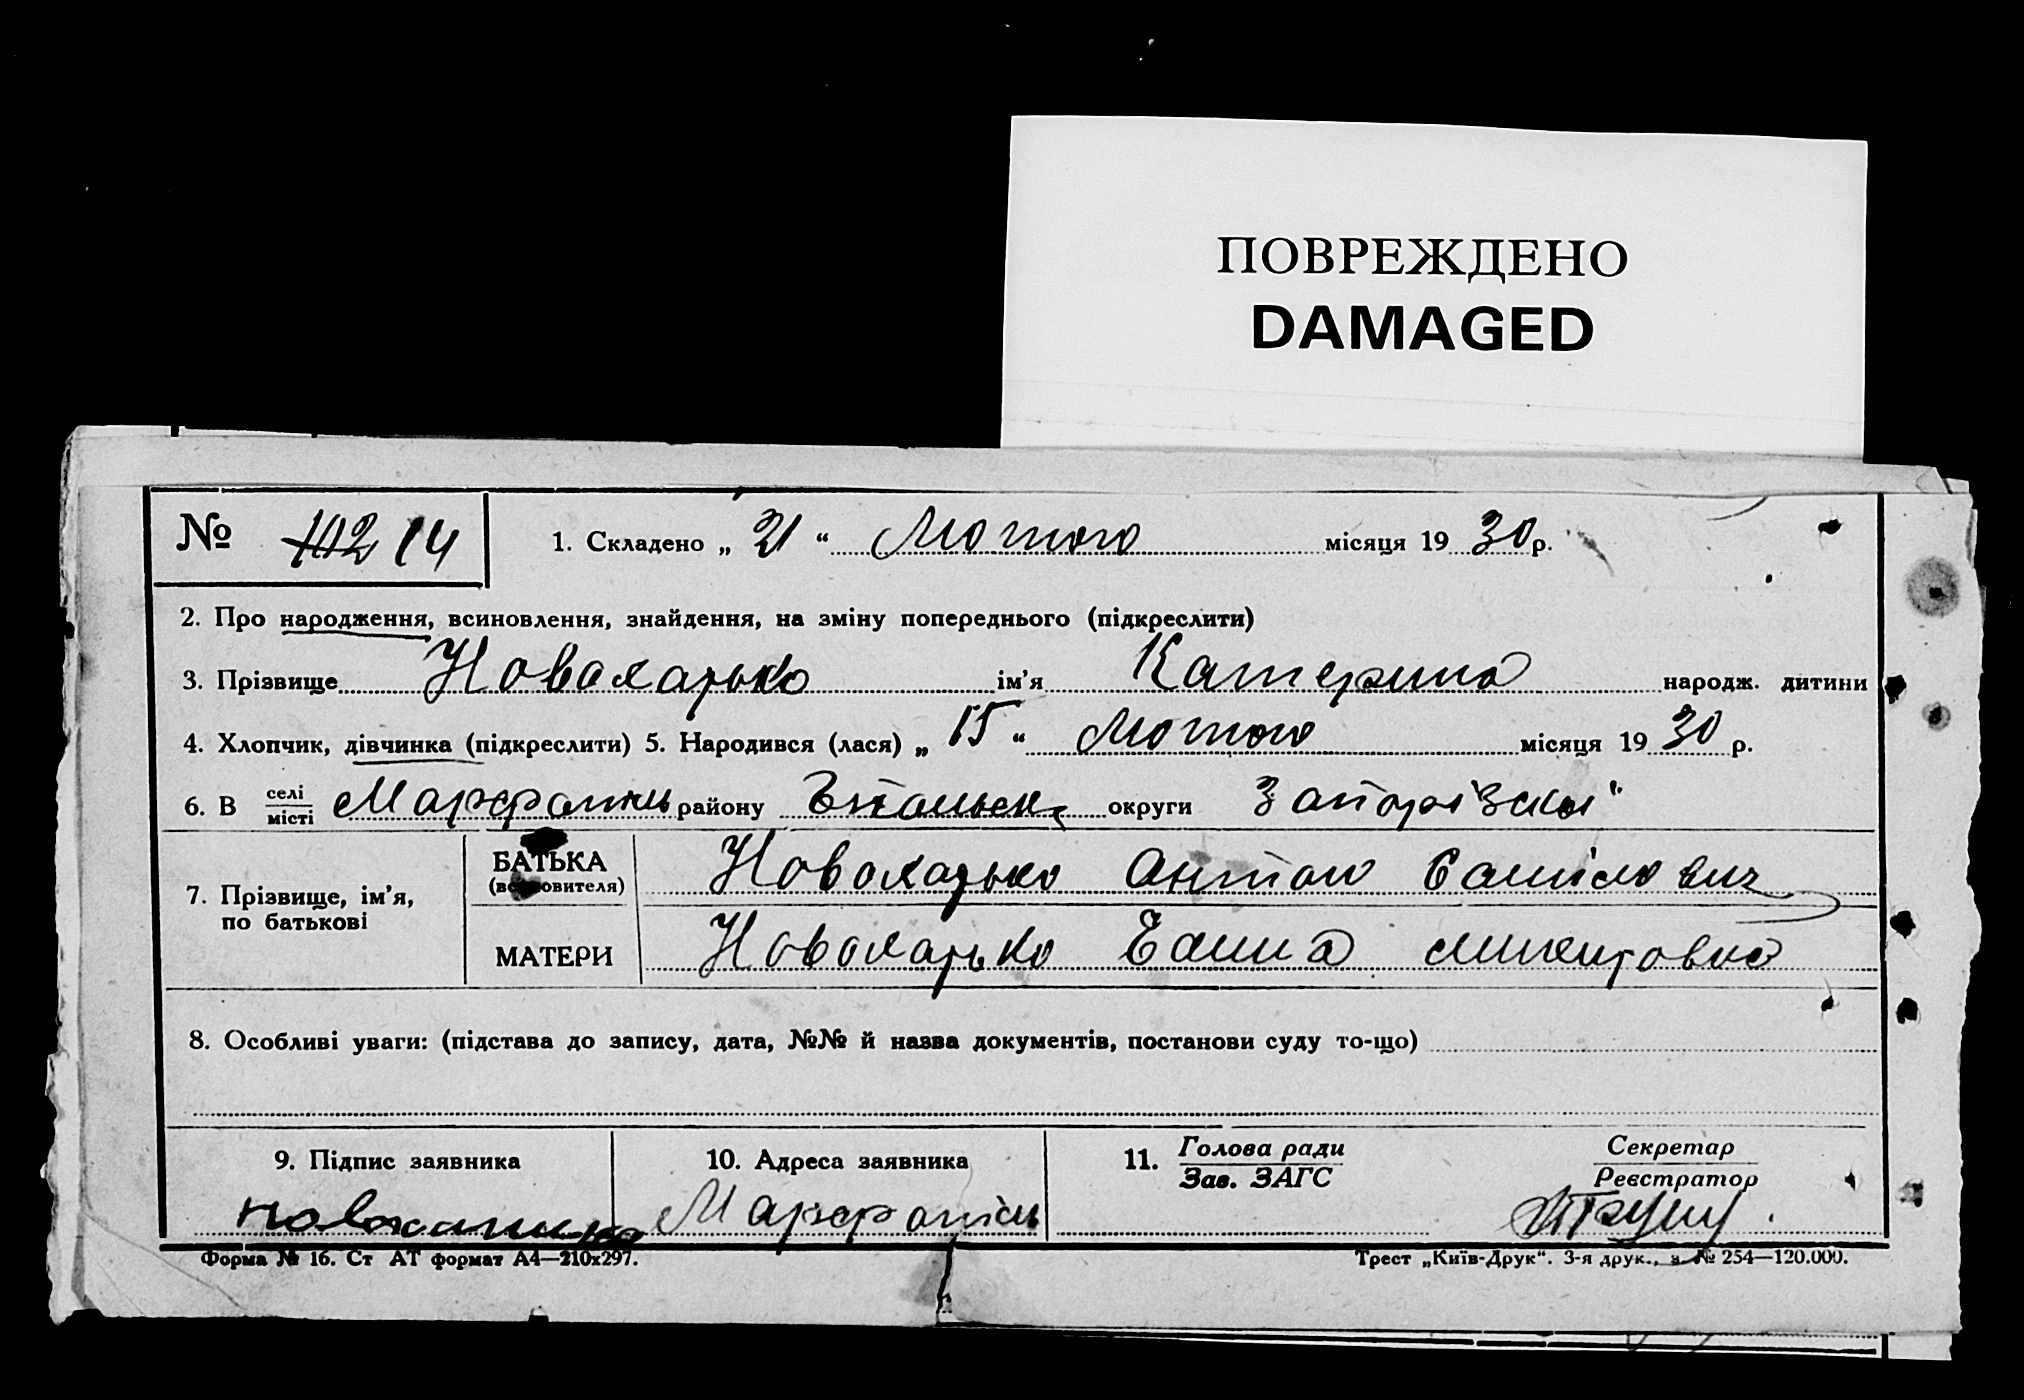 ПОВРЕЖДЕНО
DAMAGED
№ 102 14
1. Складено „ 21 “ Лютого місяця 19 30 р.
2. Про народження, всиновлення, знайдення, на зміну попереднього (підкреслити)
3. Прізвище Новохатько ім’я Катерина народж. дитини
4. Хлопчик, дівчинка (підкреслити) 5. Народився (лася) „ 15 “ Лютого місяця 19 30 р.
6. В селі місті району округи Запорізськ
7. Прізвище, ім’я, по батькові
БАТЬКА (всиновителя) Новохатько Антон
МАТЕРИ Новохатько
8. Особливі уваги: (підстава до запису, дата, №№ й назва документів, постанови суду то-що)
9. Підпис заявника
10. Адреса заявника
11. Голова ради Зав. ЗАГС
Секретар Реєстратор
Форма № 16. Ст АТ формат А4—210х297.
Трест „Київ-Друк“. 3-я друк., з. № 254—120.000.